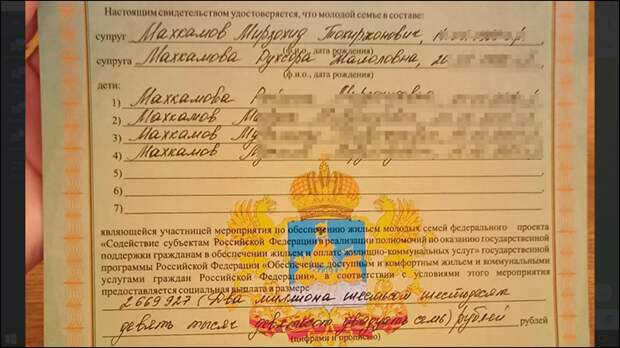 Настоящим свидетельством удостоверяется, что молодой семье в составе:
супруг Махкамов Мирзохид Тохиржонович,
(ф.и.о., дата рождения)
супруга Махкамова Рухсора Жалоловна, 20
(ф.и.о., дата рождения)
дети:
1) Махкамова
2) Махкамов
3) Махкамов Му
4) Махкамов
5)
6)
7)
являющейся участницей мероприятия по обеспечению жильем молодых семей федерального проекта
«Содействие субъектам Российской Федерации в реализации полномочий по оказанию государственной
поддержки гражданам в обеспечении жильем и оплате жилищно-коммунальных услуг» государственной
программы Российской Федерации «Обеспечение доступным и комфортным жильем и коммунальными
услугами граждан Российской Федерации», в соответствии с условиями этого мероприятия
предоставляется социальная выплата в размере
2 669 927 (Два миллиона шестьсот шестьдесят
девять тысяч девятьсот двадцать семь) рублей рублей
(цифрами и прописью)